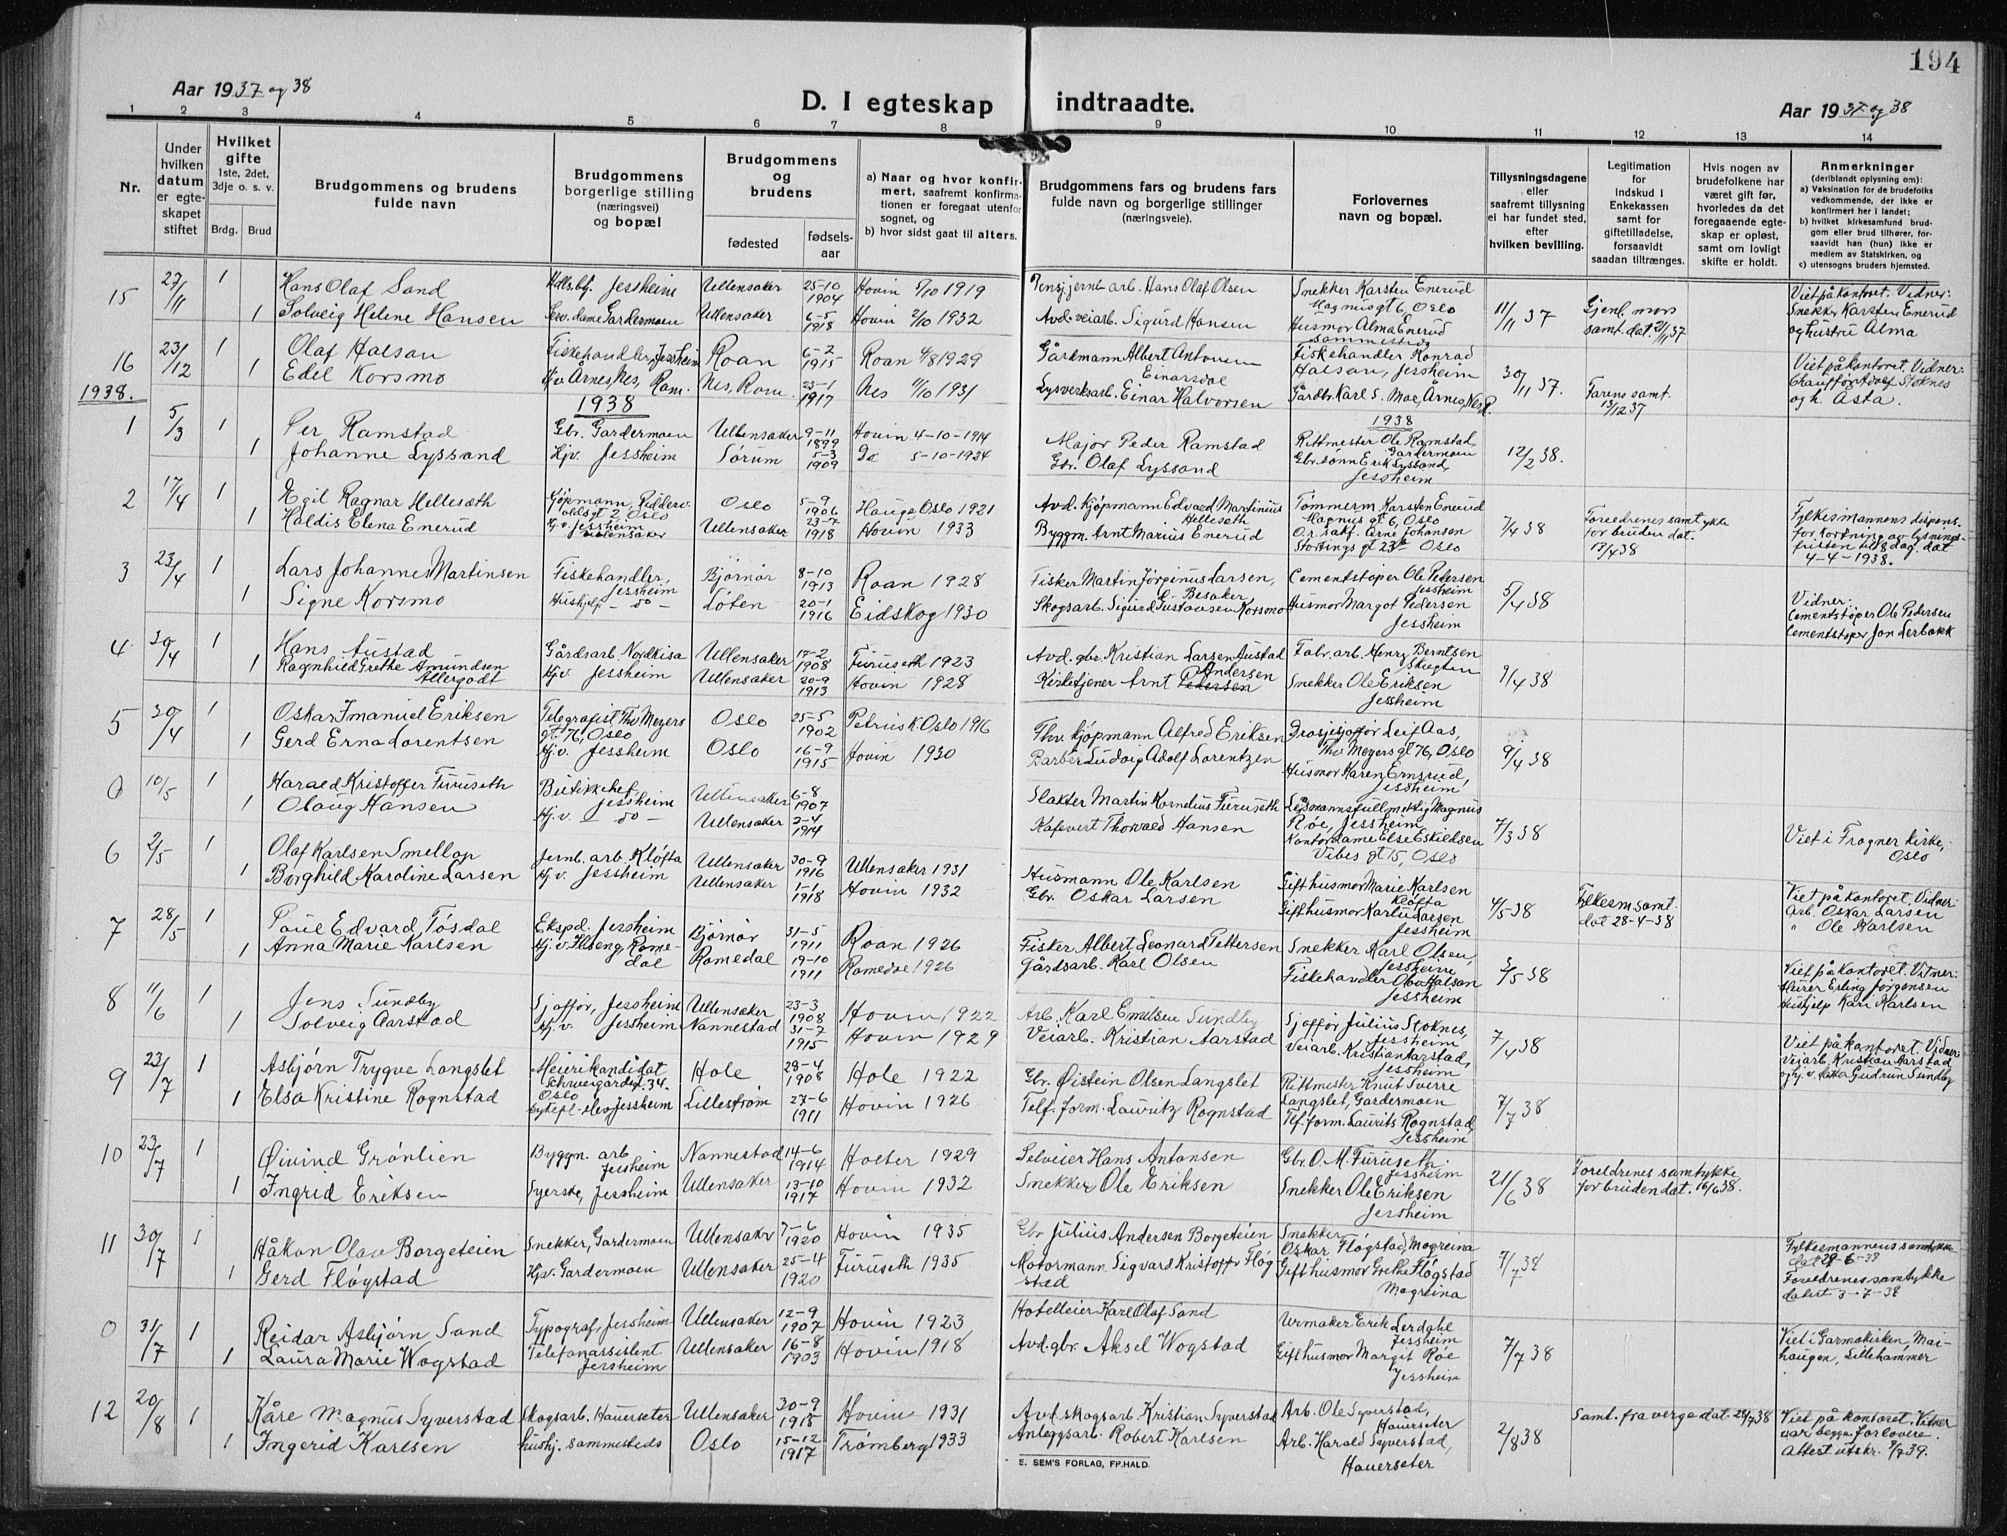 194
Aar 1937 og 38
D. I egteskap indtraadte.
Aar 1937 og 38
1 2 3 4 5 6 7 8 9 10 11 12 13 14
Nr.
Under hvilken datum er egteskapet stiftet
Hvilket gifte 1ste, 2det, 3dje o. s. v.
Brdg. Brud
Brudgommens og brudens fulde navn
Brudgommens borgerlige stilling (næringsvei) og bopæl
Brudgommens og brudens
fødested
fødselsaar
a) Naar og hvor konfirmert, saafremt konfirmationen er foregaat utenfor sognet, og
b) hvor sidst gaat til alters.
Brudgommens fars og brudens fars fulde navn og borgerlige stillinger (næringsveie).
Forlovernes navn og bopæl.
Tillysningsdagene eller saafremt tillysning ei har fundet sted, efter hvilken bevilling.
Legitimation for indskud i Enkekassen samt for giftetilladelse, forsaavidt saadan tiltrænges.
Hvis nogen av brudefolkene har været gift før, hvorledes da det foregaaende egteskap er opløst, samt om lovligt skifte er holdt.
Anmerkninger (deriblandt oplysning om):
a) Vaksination for de brudefolks vedkommende, der ikke er konfirmert her i landet;
b) hvilket kirkesamfund brudgom eller brud tilhører, forsaavidt han (hun) ikke er medlem av Statskirken, og
c) utensogns bruders hjemsted.
15 27/11 1 Hans Olaf Sand Hdlsbtj. Jessheim Ullensaker 25-10 1904 Hovin 5/10 1919 arb. Hans Olaf Olsen Snekker Karsten Enerud Magnusgt 6, Oslo
1 Solveig Helene Hansen Serv. dame Gardermoen Ullensaker 6-5 1918 Hovin 2/10 1932 Avd. veiarb. Sigurd Hansen Husmor Alma Enerud sammesteds 11/11 37 Gjenl. mors samt. dat. 2/11 37 Viet på kontoret. Vidner: Snekker Karsten Enerud og hustru Alma
16 23/12 1 Olaf Halsan Fiskehandler, Jessheim Roan 6-2 1915 Roan 4/8 1929 Gårdmann Albert Antonien Einarsdal Fiskehandler Konrad Halsan, Jessheim
1 Edel Korsmo Hjv. Årnes, Nes, Rom. Nes, Rom. 23-1 1917 Nes 11/10 1931 Lysverksarb. Einar Halvorsen Gårdbr. Karl S. Moe, Årnes, Nes R. 30/11 37. Farens samt. 13/12 37 Viet på kontoret. Vidner: Chauffør Adolf Stoknes og h. Asta.
1938.
1938
1938
1 5/3 1 Per Ramstad Gbr. Gardermoen Ullensaker 9-11 1899 Hovin 4-10-1914 Major Peder Ramstad Rittmester Ole Ramstad, Gardermoen
1 Johanne Lyssand Hjv. Jessheim Sørum 5-3 1909 Do 5-10-1924 Gbr. Olaf Lyssand Gbr. sønn Erik Lyssand, Jessheim 12/2 38.
2 17/4 1 Egil Ragnar Hellesæth Kjøpmann, Ridderv. oldsgt 2, Oslo Oslo 5-9 1906 Hauge Oslo 1921 Avd. Kjøpmann Edvard Martinius Helleseth Tømmerm Karsten Enerud Magnus gt 6, Oslo
1 Haldis Elena Enerud Hj. v. Jessheim Ullensaker Ullensaker 23-7 1918 Hovin 1933 Byggm. Arnt Marius Enerud O.r. sakf. Arne Johansen Stortings gt 23b Oslo 7/4 38 Foreldrenes samtykke for bruden dat. 13/4 38 Fylkesmannens dispens. for kortning av lysningsfristen til 8 dag. dat 4-4-1938.
3 23/4 1 Lars Johannes Martinsen Fiskehandler, Jessheim Bjørnør 8-10 1913 Roan 1928 Fisker Martin Jørginus Larsen, Besaker Cementstøper Ole Pedersen Jessheim
1 Signe Korsmo Hushjelp - do - Løten 20-1 1916 Eidskog 1930 Skogsarb. Sigurd Gustavsen Korsmo Husmor Margot Pedersen Jessheim 5/4 38 Vidner: Cementstøper Ole Pedersen Cementstøper Jon Lerbakk
4 30/4 1 Hans Austad Gårdsarb. Nordkisa Ullensaker 17-2 1908 Furuseth 1923 Avd. gbr. Kristian Larsen Austad Fabr. arb. Henry Berntsen Skogten
1 Ragnhild Grethe Amundsen Allergodt Hjv. Jessheim Ullensaker 20-9 1913 Hovin 1928 Kirketjener Arnt Pedersen Andersen Snekker Ole Eriksen Jessheim 9/4 38
5 30/4 1 Oskar Imanuel Eriksen Telegrafist Thv. Meyers gt. 76, Oslo Oslo 25-5 1902 Petrus K Oslo 1916 Thv. kjøpmann Alfred Eriksen Drosjesjoffør Leif Aas, Thv Meyers gt 76, Oslo
1 Gerd Erna Lorentsen Hj. v. Jessheim Oslo 16-9 1915 Hovin 1930 Barber Ludvig Adolf Lorentzen Husmor Karen Ernsrud, Jessheim 9/4 38
0 10/5 1 Harald Kristoffer Furuseth Butikkchef Jessheim Ullensaker 6-8 1907 Slakter Martin Kornelius Furuseth Lensmannsfullmektig Magnus Røe, Jessheim
1 Olaug Hansen Hj. v. - do - Ullensaker 2-4 1914 Kafevert Thorvald Hansen Kontordame Else Eskildsen Vibes gt 15, Oslo 7/3 38 Viet i Frogner kirke, Oslo
6 2/5 1 Olaf Karlsen Smellop Jernb. arb. Kløfta Ullensaker 30-9 1916 Ullensaker 1931 Husmann Ole Karlsen Gift husmor Marie Karlsen Kløfta
1 Borghild Karoline Larsen Hj. v. Jessheim Ullensaker 1-1 1918 Hovin 1932 Gbr. Oskar Larsen Gift husmor Karlu Larsen Jessheim 4/5-38 Fylkesm samt. dat 28-4-38 Viet på kontoret. Vidner: Arb. Oskar Larsen " Ole Karlsen
7 28/5 1 Poul Edvard Tøsdal Ekspd. Jessheim Bjørnør 31-5 1911 Roan 1926 Fisker Albert Leonard Pettersen Snekker Karl Olsen, Jessheim
1 Anna Marie Karlsen Hj. v. Ilseng, Romedal Romedal 19-10 1911 Romedal 1926 Gårdsarb. Karl Olsen Fiskehandler Olav Halsan Jessheim 3/5 38 Viet på kontoret. Vitner: Meier Erling Jørgensen Hushjelp Kari Karlsen
8 11/6 1 Jens Sundby Sjåfør, Jessheim Ullensaker 23-3 1908 Hovin 1922 Arb. Karl Emilsen Sundby Sjoffør Julius Stoknes, Jessheim
1 Solveig Aarstad Hj. v. Jessheim Nannestad 31-7 1915 Hovin 1929 Veiarb. Kristian Aarstad Veiarb. Kristian Aarstad, Jessheim 7/4 38 Viet på kontoret. Vidner: Veiarb. Kristian Aarstad og hj. v. Gudrun Sundby
9 23/7 1 Asbjørn Trygve Langslet Meierikandidat Schweigårdsgt. 34. Oslo Hole 28-4 1908 Hole 1922 Gbr. Øistein Olsen Langslet Rittmester Knut Sverre Langslet, Gardermoen
1 Elsa Kristine Rognstad Sykepl. elev Jessheim Lillestrøm 27-6 1911 Hovin 1926 Telf. form. Lauritz Rognstad Telf. form. Laurits Rognstad, Jessheim 7/7 38
10 23/7 1 Øivind Grønlien Byggm. arb Jessheim Nannestad 14-6 1914 Holter 1929 Selveier Hans Antonsen Gbr. O. M. Furuseth Jessheim
1 Ingrid Eriksen Syerske, Jessheim Ullensaker 13-10 1917 Hovin 1932 Snekker Ole Eriksen Snekker Ole Eriksen Jessheim 21/6 38 Foreldrenes samtykke for bruden dat. 16/6 38.
11 30/7 1 Håkon Olav Borgeteien Snekker, Gardermoen Ullensaker 7-6 1920 Hovin 1935 Gbr Julius Andersen Borgeteien Snekker Oskar Fløgstad, Mogreina
1 Gerd Fløgstad Hjv. Gardermoen Ullensaker 25-4 1920 Furuseth 1935 Motormann Sigvard Kristoffer Fløgstad Gift husmor Grethe Fløgstad Mogreina 7/7 38 Fylkesmannens samtykke dat 29-6-38 Foreldrenes samtykke datert 3-7-38
0 31/7 1 Reidar Asbjørn Sand Typograf, Jessheim Ullensaker 12-9 1907 Hovin 1923 Hotelleier Karl Olaf Sand Urmaker Erik Lerdahl Jessheim
1 Laura Marie Wogstad Telefonassistent Jessheim Ullensaker 16-8 1903 Hovin 1918 Avd. gbr. Aksel Wogstad Gift husmor Margit Røe Jessheim 7/7 38 Viet i Garmokirken, Maihaugen, Lillehammer
12 20/8 1 Kåre Magnus Syverstad Skogsarb. Hauerseter Ullensaker 30-9 1915 Hovin 1931 Avd. skogsarb. Kristian Syverstad Arb. Ole Syverstad, Hauerseter
1 Ingerid Karlsen hushj. sammesteds Oslo 15-12 1917 Trømborg 1933 Anleggsarb. Robert Karlsen Arb. Harald Syverstad, Hauerseter 2/8 38 Samt. fra verge dat. 29/7 38 Viet på kontoret. Vitner var begge forlovere. Attest utskr. 7/7 39.
E. SEM'S FORLAG, FP.HALD.